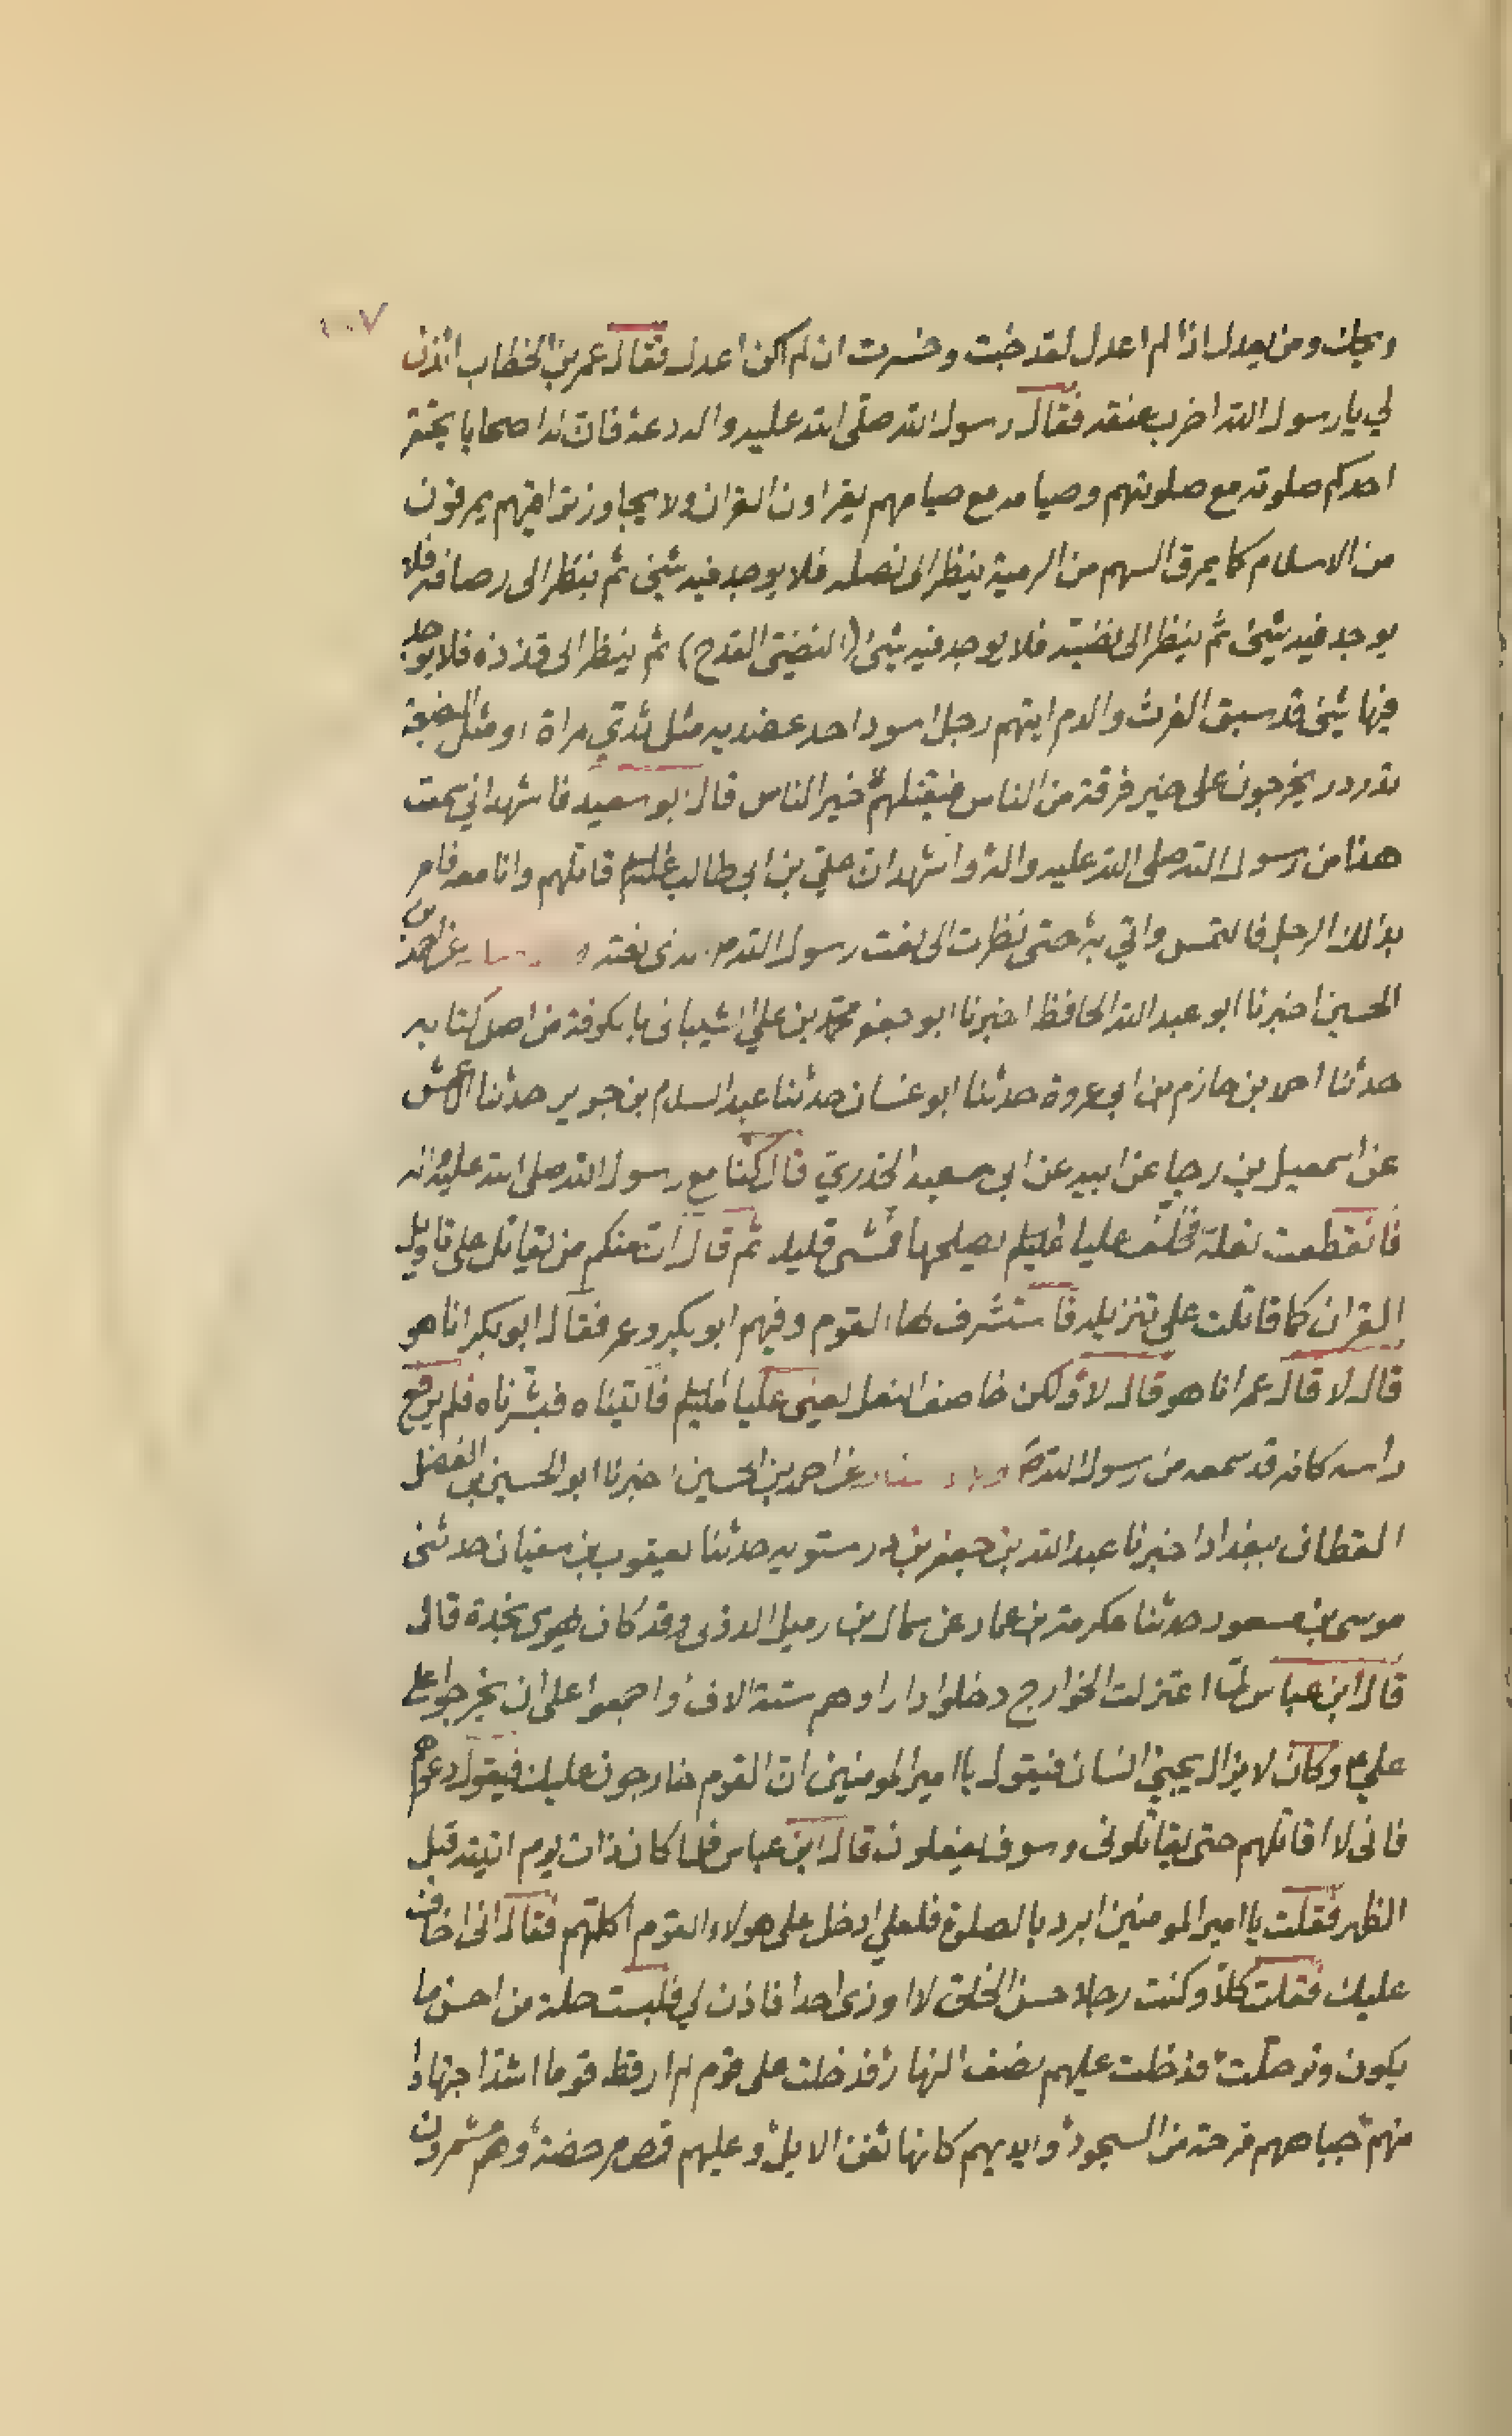 ١٠٧
ويحك ومن يعدل اذا لم اعدل لقد خبت وخسرت ان لم اكن اعدل فقال عمر بن الخطاب ائذن
لي يا رسول الله اضرب عنقه فقال رسول الله صلى الله عليه واله دعه فان له اصحابا يحتقر
احدكم صلوته مع صلوتهم وصيامه مع صيامهم يقراون القران ولا يجاوز تراقيهم يمرقون
من الاسلام كما يمرق السهم من الرمية ينظر الى نصله فلا يوجد فيه شئ ثم ينظر الى رصافه فلا
يوجد فيه شئ ثم ينظر الى نضيه فلا يوجد فيه شئ (النضي القدح) ثم ينظر الى قذذه فلا يوجد
فيها شئ قد سبق الفرث والدم ايتهم رجل اسود احد عضديه مثل ثدي مراة او مثل البضعة
تدردر يخرجون على خير فرقة من الناس فيقتلهم خير الناس قال ابو سعيد فاشهد اني سمعت
هذا من رسول الله صلى الله عليه واله واشهد ان علي بن ابي طالب قاتلهم وانا معه فامر
بذلك الرجل فالتمس واتي به حتى نظرت الى نعت رسول الله ص نعته عن احمد بن
الحسين اخبرنا ابو عبد الله الحافظ اخبرنا ابو جعفر محمد بن علي الشيباني بالكوفة من اصل كتابه
حدثنا احمد بن حازم بن ابي عروة حدثنا ابو غسان حدثنا عبد السلام بن جوير حدثنا الاعمش
عن اسمعيل بن رجا عن ابيه عن ابي سعيد الخدري قال كنا مع رسول الله صلى الله عليه واله
فانقطعت نعله فخلف عليا يصلحها فمشى قليلا ثم قال ان منكم من يقاتل على تاويل
القران كما قاتلت على تنزيله فاستشرف لها القوم وفيهم ابو بكر وعمر فقال ابو بكر انا هو
قال لا قال عمر انا هو قال لا ولكن خاصف النعل يعني عليا فاتيناه فبشرناه فلم يرفع
راسه كانه قد سمعه من رسول الله ص عن احمد بن الحسين اخبرنا ابو الحسين بن الفضل
القطان ببغداد اخبرنا عبد الله بن جعفر بن درستويه حدثنا يعقوب بن سفيان حدثني
موسى بن مسعود حدثنا عكرمة بن عمار عن سماك بن رميل الدولي وقد كان يهوى نجدة قال
قال ابن عباس لما اعتزلت الخوارج دخلوا دارا وهم ستة الاف واجمعوا على ان يخرجوا على
علي ع وكان لا يزال يجئ انسان فيقول يا امير المومنين ان القوم خارجون عليك فيقول دعهم
فاني لا اقاتلهم حتى يقاتلوني وسوف يفعلون قال ابن عباس فلما كان ذات يوم اتيته قبل
الظهر فقلت يا امير المومنين ابرد بالصلوة فلعلي ادخل على هولاء القوم اكلمهم فقال اني اخاف
عليك فقلت كلا وكنت رجلا حسن الخلق لا اوذي احدا فاذن لي فلبست حلة من احسن ما
يكون وترجلت فدخلت عليهم نصف النهار فدخلت على قوم لم ار قط قوما اشد اجتهادا
منهم جباههم قرحة من السجود وايديهم كانها ثفن الابل وعليهم قمص مرحضة وهم مشمرون